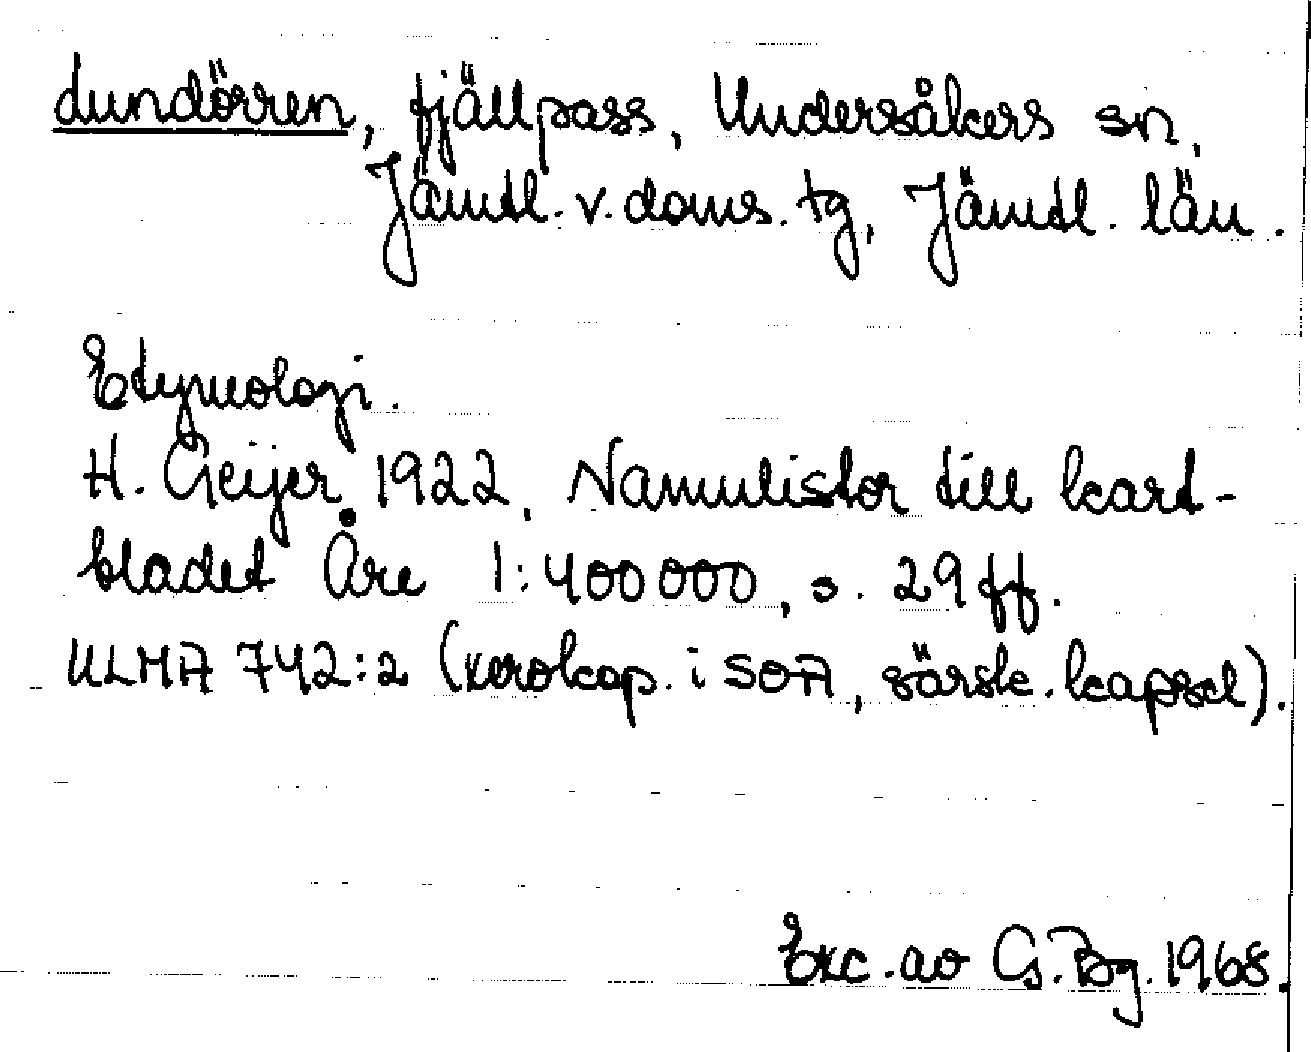 Lundörren, fjällpass, Undersåkers sn,
Jämtl. v. doms. tg, Jämtl. län.
Etymologi.
H. Geijer, 1922, Namnlistor till kart-
bladet Åre 1:400000, s. 29 ff.
ULMA 742:2 (xerokop. i SOA, särsk. kapsel).
Exc. av G. Bg. 1968.